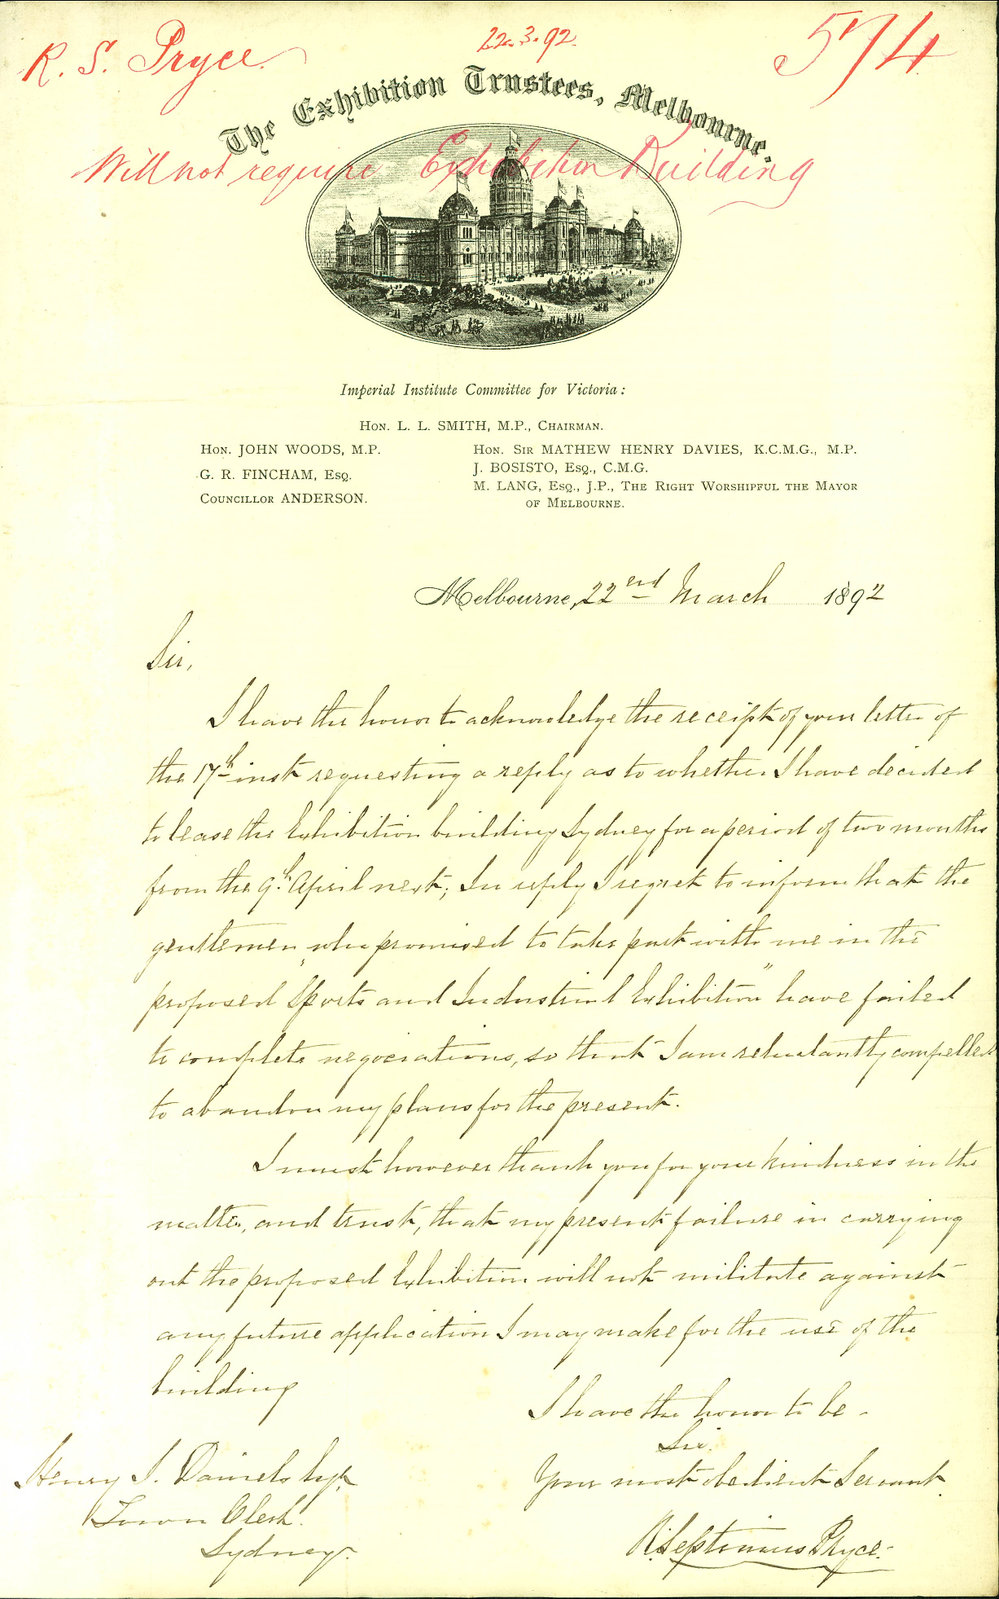 R. S. Pryce
22.3.92.
574
The Exhibition Trustees, Melbourne.
Will not require Exhibition Building
Imperial Institute Committee for Victoria:
Hon. L. L. SMITH, M.P., Chairman.
Hon. JOHN WOODS, M.P.
G. R. FINCHAM, Esq.
Councillor ANDERSON.
Hon. Sir MATHEW HENRY DAVIES, K.C.M.G., M.P.
J. BOSISTO, Esq., C.M.G.
M. LANG, Esq., J.P., The Right Worshipful the Mayor
of Melbourne.
Melbourne, 22nd March 1892
Sir,
I have the honor to acknowledge the receipt of your letter of
the 17th inst requesting a reply as to whether I have decided
to lease the Exhibition building Sydney for a period of two months
from the 9th April next; In reply I regret to inform that the
gentlemen who promised to take part with me in the
proposed "Sports and Industrial Exhibition" have failed
to complete negociations, so that I am reluctantly compelled
to abandon my plans for the present.
I must however thank you for your kindness in the
matter, and trust, that my present failure in carrying
out the proposed Exhibition will not militate against
any future application I may make for the use of the
building
I have the honor to be -
Sir.
Your most obedient Servant.
R. Septimus Pryce.
Henry J. Daniels Esq.
Town Clerk.
Sydney.